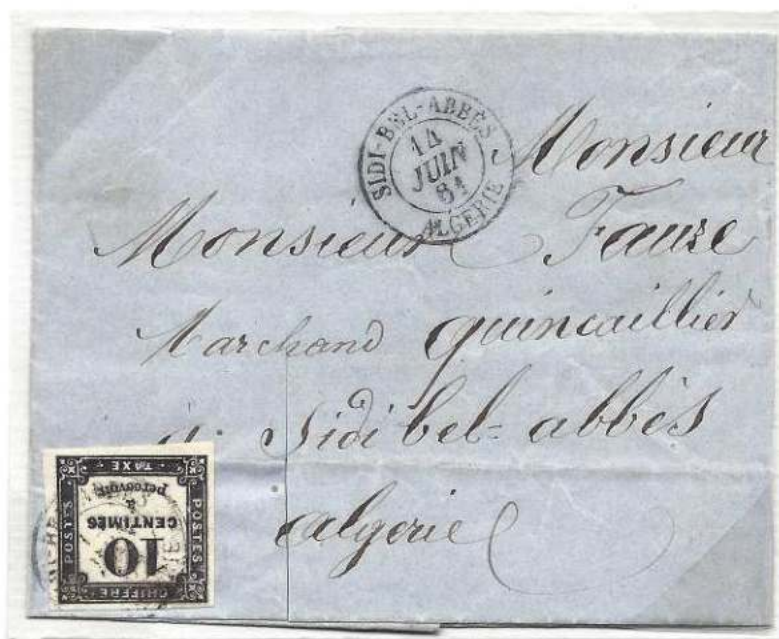 SIDI-BEL-ABBÈS
14
JUIN
61
ALGERIE
Monsieur
Monsieur Fauze
Marchand quincaillier
à Sidi bel-abbès
algerie
CHIFFRE
10
CENTIMES
à
percevoir
TAXE
POSTES
POSTES